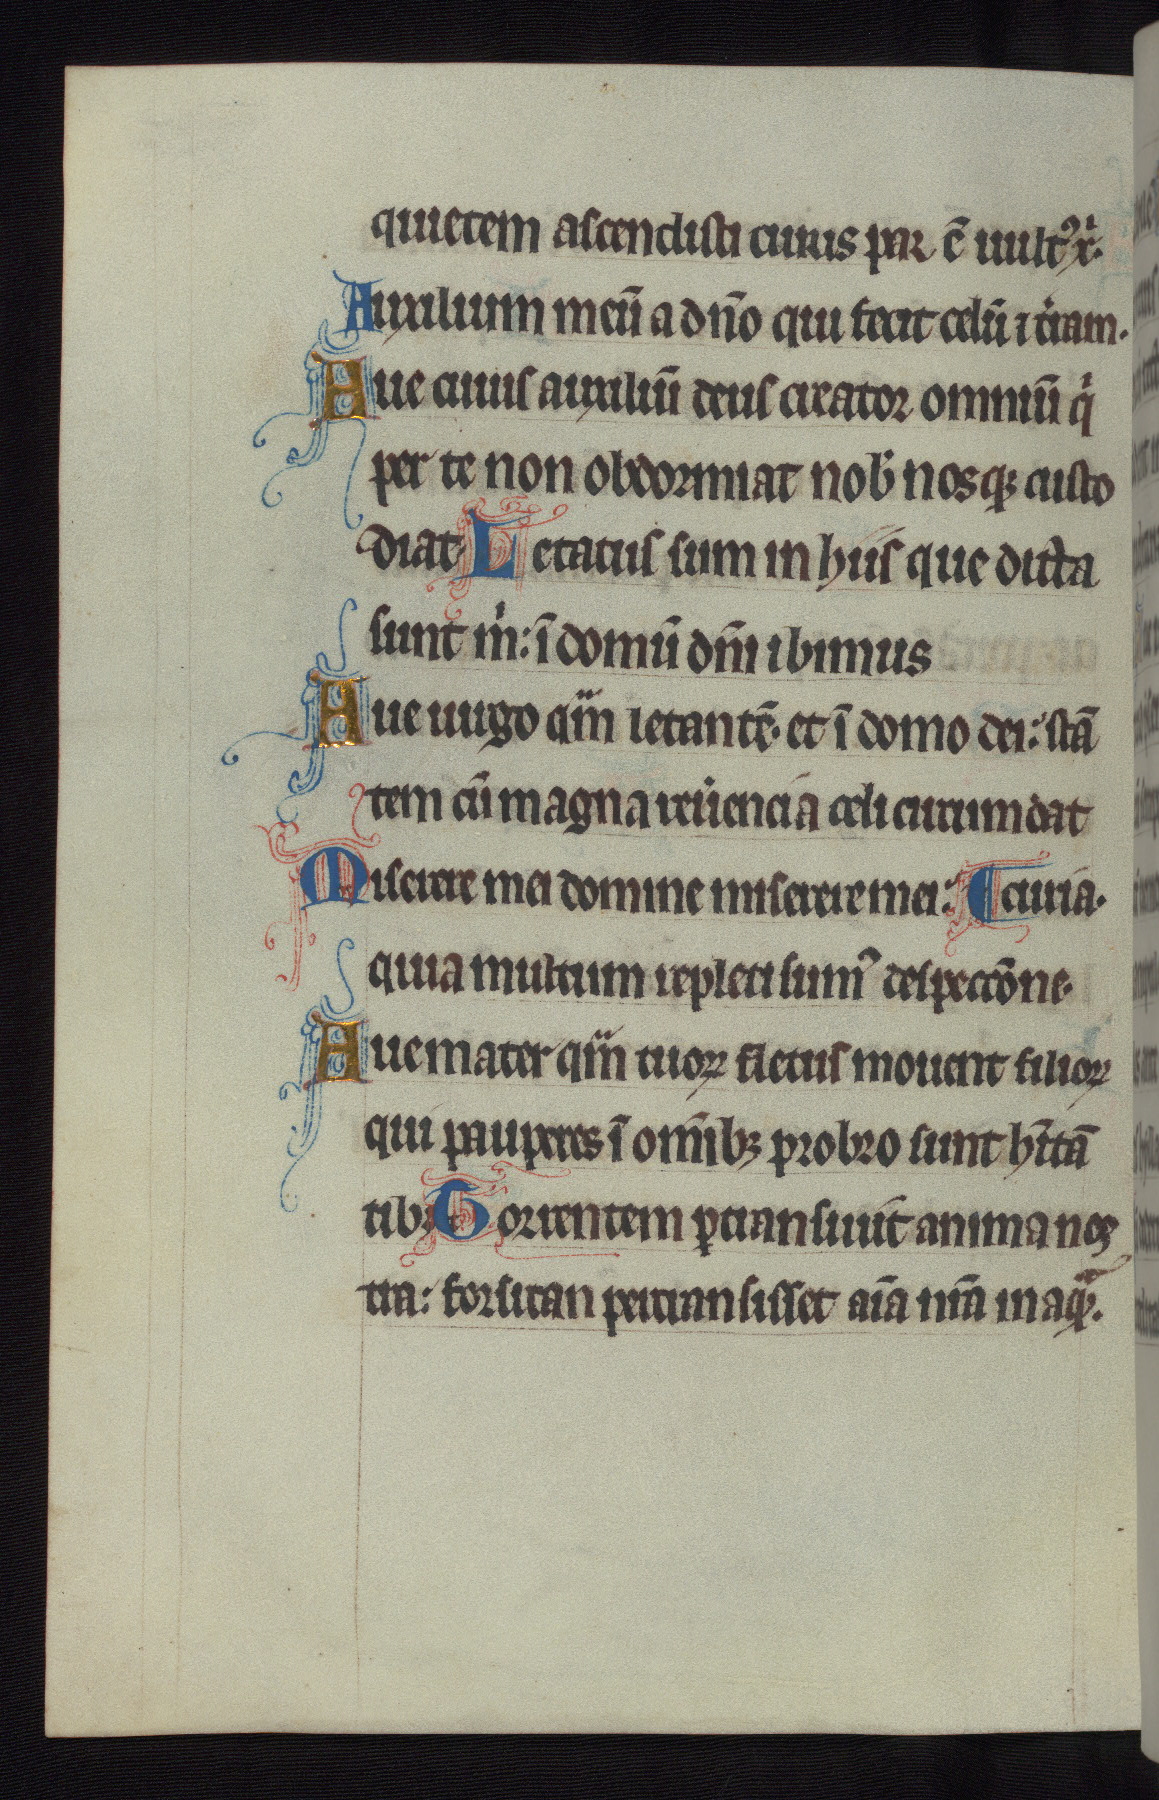 quietem ascendisti cuius par ē uult᷒ xp̄i.
Auxilium meū a dn̄o qui fecit celū ⁊ t̄ram.
Aue cuius auxiliū deus creator omniū qͥ
per te non obdormiat nob̄ nosq; custo
diat. Letatus sum in hiis que dicta
sunt m̄: ī domū dn̄i ibimus
Aue uirgo qm̄ letantē. et ī domo dei: stā
tem cū magna reuencia celi circumdat
Miserere mei domine miserere mei:
quia multum repleti sum᷒ despectōne.
Aue mater qm̄ tuoꝝ fletus mouent filioꝝ
qui pauperes ī om̄ibꝫ probro sunt hītā
tibꝫ Torrentem ꝑtransiuit anima nos
tra: forsitan pertransisset aīa nr̄a in aqͣ.